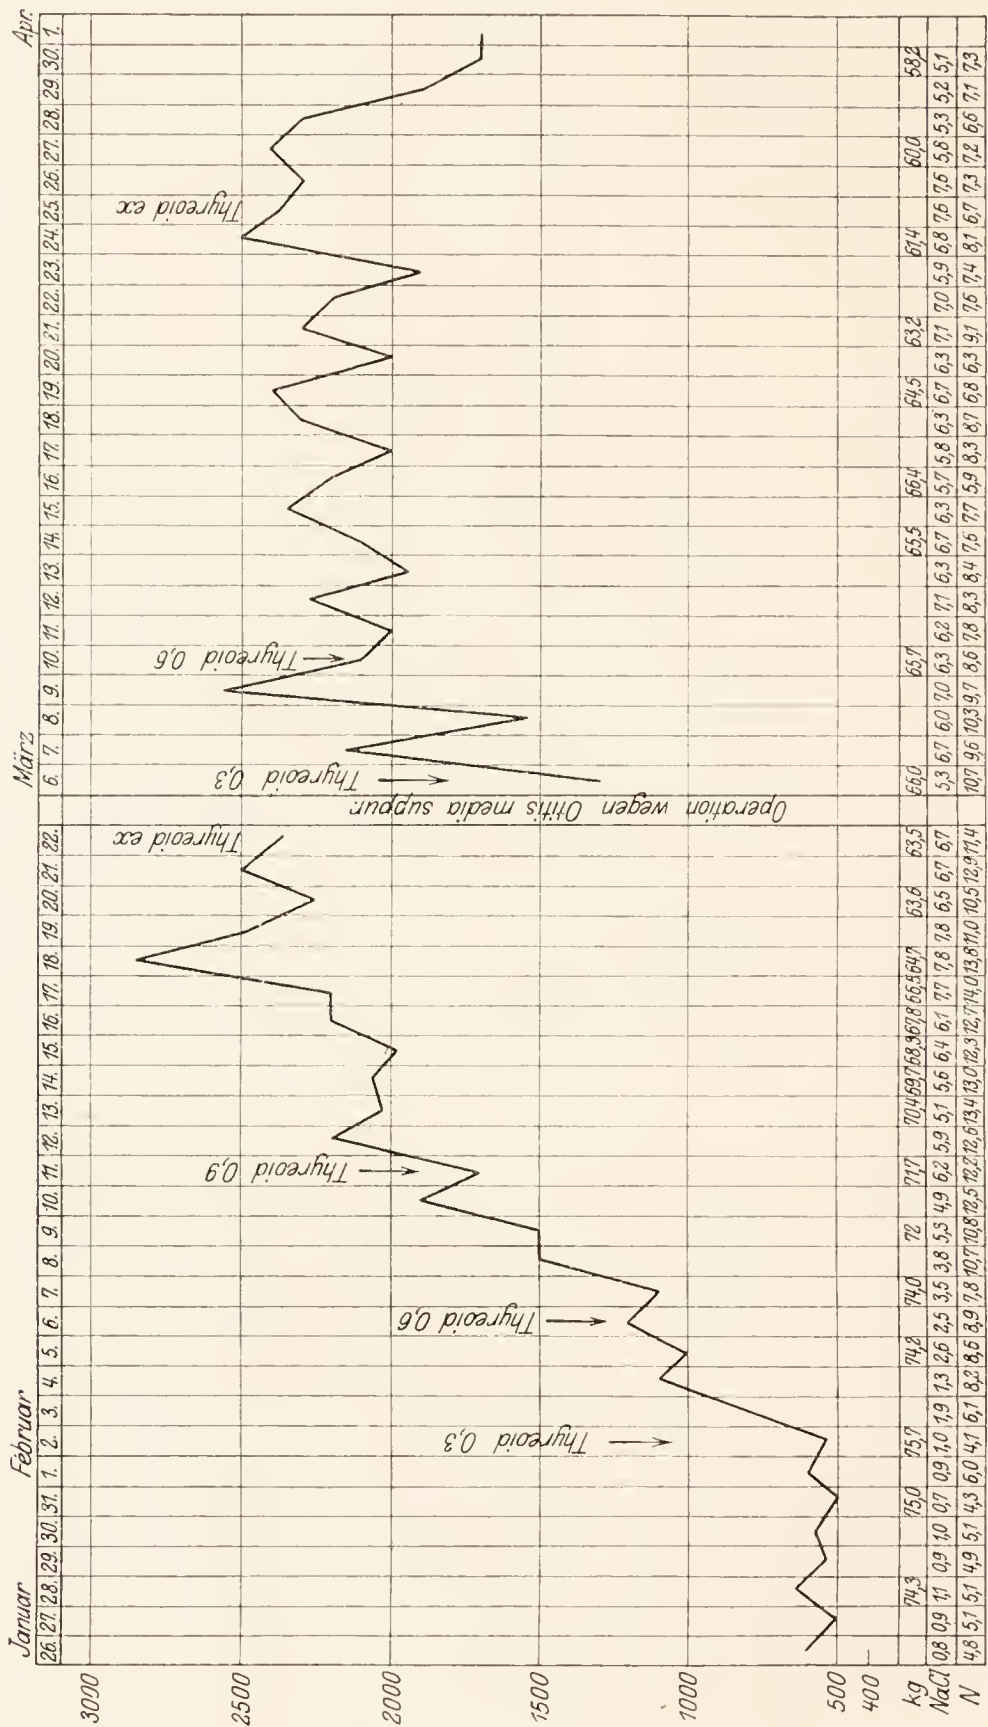 Januar Februar März Apr.
26. 27. 28. 29. 30. 31. 1. 2. 3. 4. 5. 6. 7. 8. 9. 10. 11. 12. 13. 14. 15. 16. 17. 18. 19. 20. 21. 22. 6. 7. 8. 9. 10. 11. 12. 13. 14. 15. 16. 17. 18. 19. 20. 21. 22. 23. 24. 25. 26. 27. 28. 29. 30. 1.
3000
2500
2000
1500
1000
500
400
Thyreoid 0,3
Thyreoid 0,6
Thyreoid 0,9
Thyreoid ex
Operation wegen Otitis media suppur.
Thyreoid 0,3
Thyreoid 0,6
Thyreoid ex
kg 74,3 75,0 75,7 74,2 74,0 72 71,7 70,4 69,7 68,3 67,8 66,5 64,7 63,6 63,5 66,0 65,7 65,5 66,4 64,5 63,2 61,4 60,0 58,2
NaCl 0,8 0,9 1,1 0,9 1,0 0,7 0,9 1,0 1,9 1,3 2,6 2,5 3,5 3,8 5,3 4,9 6,2 5,9 5,1 5,6 6,4 6,1 7,7 7,8 7,8 6,5 6,7 6,7 5,3 6,7 6,0 7,0 6,3 6,2 7,1 6,3 6,7 6,3 5,7 5,8 6,3 6,7 6,3 7,1 7,0 5,9 6,8 7,6 7,6 5,8 5,3 5,2 5,1
N 4,8 5,1 5,1 4,9 5,1 4,3 6,0 4,1 6,1 8,2 8,6 8,9 7,8 10,7 10,8 12,5 12,2 12,6 13,4 13,0 12,3 12,7 14,0 13,8 11,0 10,5 12,9 11,4 10,7 9,6 10,3 9,7 8,6 7,8 8,3 8,4 7,6 7,7 5,9 8,3 8,7 6,8 6,3 9,1 7,6 7,4 8,1 6,7 7,3 7,2 6,6 7,1 7,3